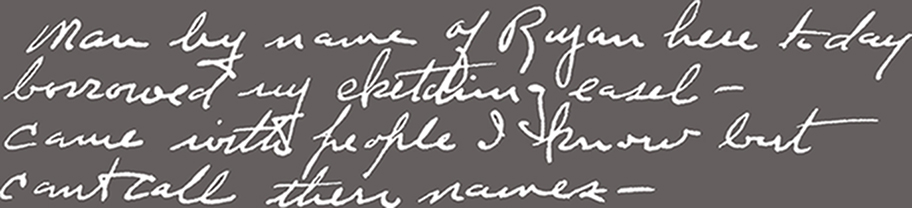 Man by name of Ryan here today
borrowed my sketching easel –
Came with people I know but
cant call their names –